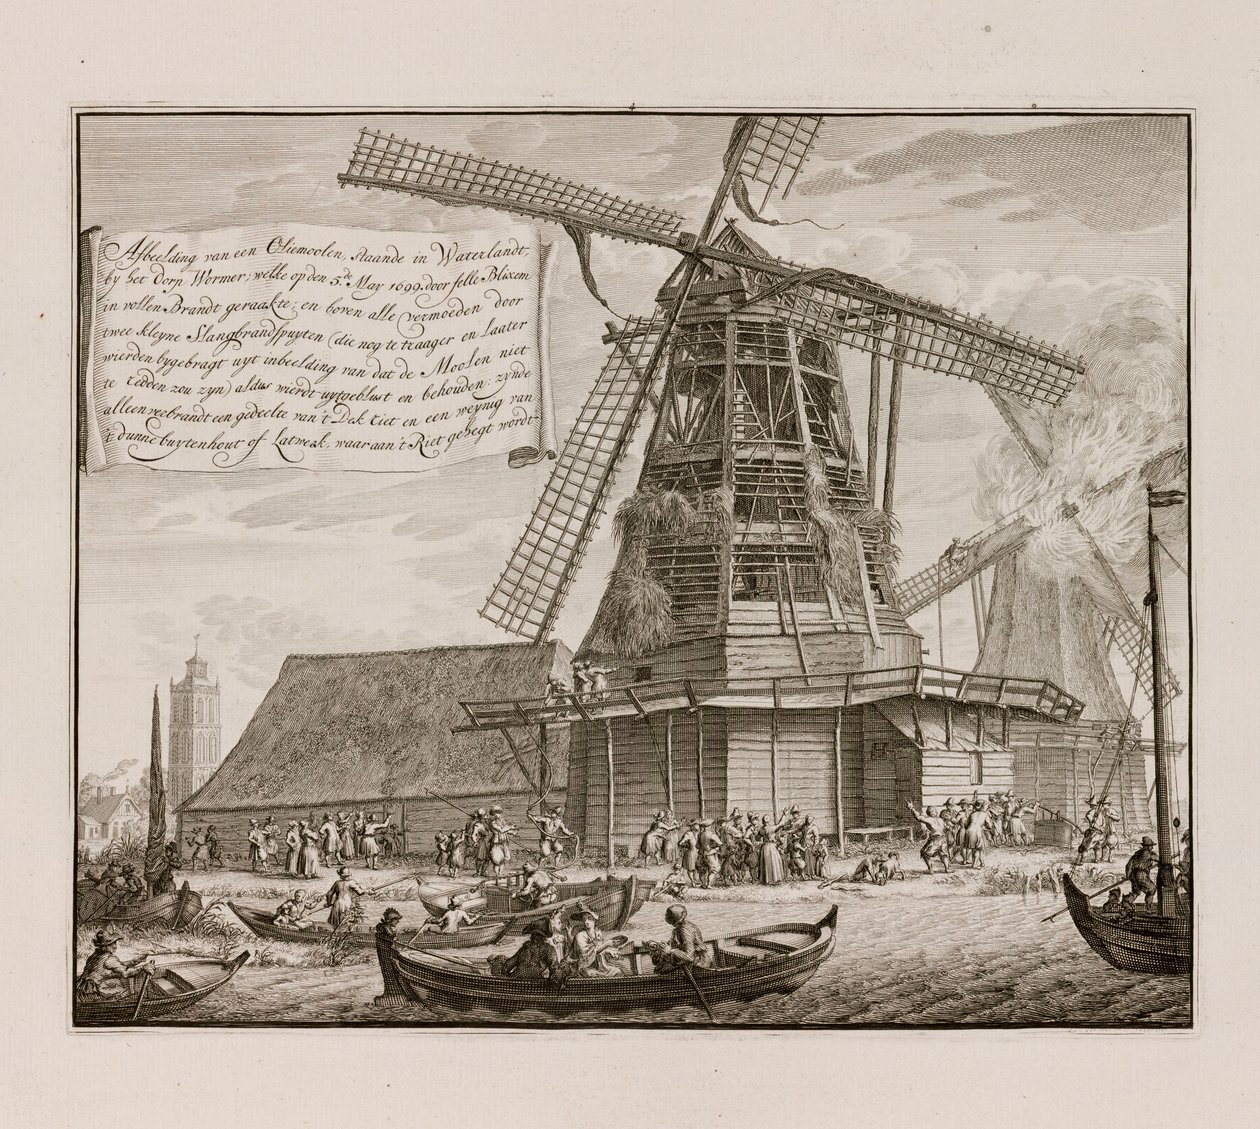 4
Afbeelding van een Oliemoolen, staande in Waterlandt,
by het Dorp Wormer; welke op den 5.de May 1699. door felle Blixem
in vollen Brandt geraakte; en boven alle vermoeden door
twee kleyne Slangbrandspuyten (die nog te traager en laater
wierden bygebragt uyt inbeelding van dat de Moolen niet
te redden zou zyn) aldus wierdt uytgeblust en behouden: zynde
alleen verbrandt een gedeelte van 't Dek Riet en een weynig van
't dunne buytenhout of Latwerk, waar aan 't Riet gehegt wordt